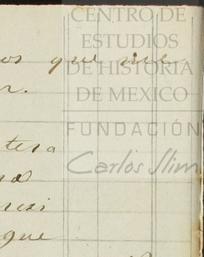 CENTRO DE
ESTUDIOS
DE HISTORIA
DE MEXICO
FUNDACIÓN
Carlos Slim
os que me
r.
tera
resi
que